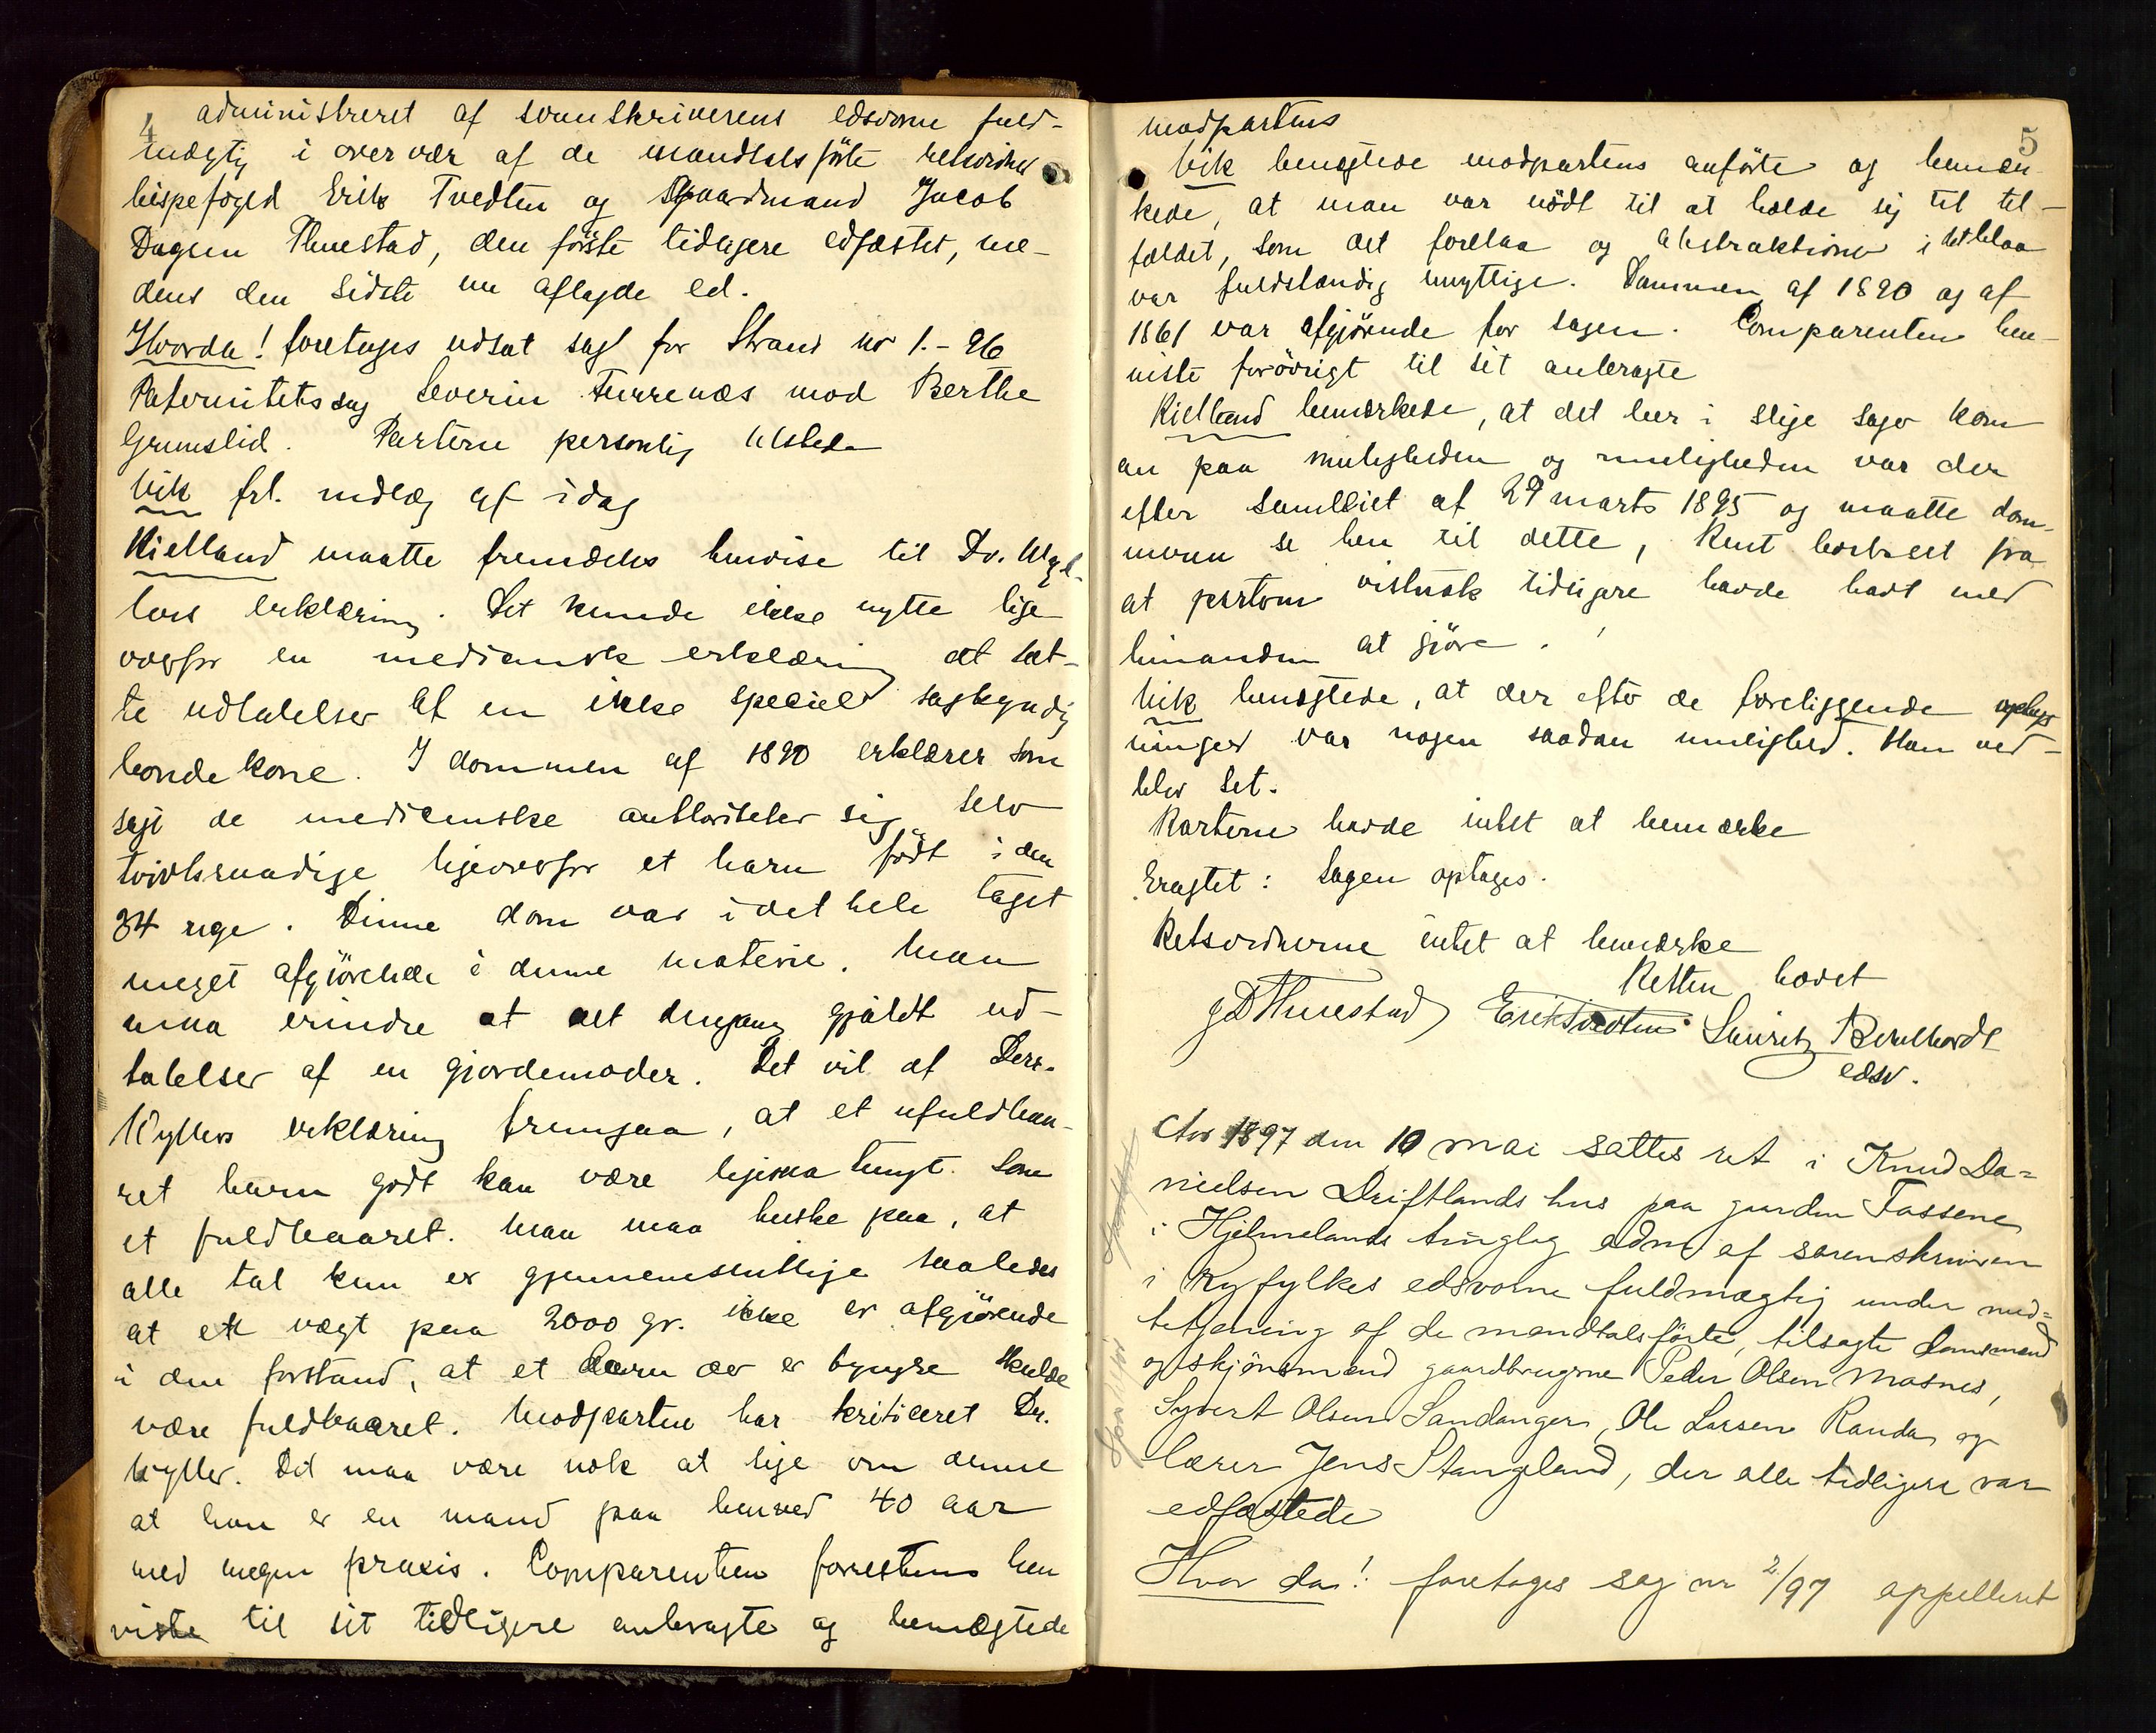 4
administreret af sorenskriverens edsvorne fuld-
mægtig i overvær af de mandtalsförte retsvidner
lrispefoged Erik Tvedten og gaardmand Jacob
Dagsen Thuestad, den förste tidligere edfæstet, me-
dens den sidste nu aflagde ed.
Hvorda! foretages udsat sag for Strand nr 1.-96
Paternitetssag Severin Furrenæs mod Berthe
Grimslid. Parterne personlig tilstede
Vik frl. indlæg af idag
Kielland maatte fremdeles henvise til Dr. Wyl-
lers erklæring. Det kunde ikke nytte lige
overfor en medicinsk erklæring at sæt-
te udtalelser af en ikke speciel sagkyndig
bondekone. I dommen af 1890 erklærer som
sagt de medicinske authoriteter sig selv
tvivlsraadige ligeoverfor et barn födt i den
34 uge. Denne dom var i det hele taget
meget afgjörende i denne materie. Man
maa erindre at det dengang gjaldt ud-
talelser af en gjordemoder. Det vil af Dr.
Wyllers erklæring fremgaa, at et ufuldbaa-
ret barn godt kan være ligesaa tungt som
et fuldbaaret. Man maa huske paa, at
alle tal kun er gjennemsnitlige saaledes
at ett vægt paa 2000 gr. ikke er afgjörende
i den forstand, at et barn der er tyngre skulde
være fuldbaaret. Modparten har kritiseret Dr.
Wyller. Det maa være nok at sige om denne
at han er en mand paa henved 40 aar
med megen praxis. Comparenten forresten hen
viste til sit tidligere anbragte og benægtede
5
modpartens
Vik benegtede modpartens anförte og bemær-
kede, at man var nödt til at holde sig til til-
fældet, som det forelaa og abstraktioner i det blaa
var fuldstændig unyttige. Dommen af 1890 og af
1861 var afgjörende for sagen. Comparenten hen-
viste forövrigt til sit anbragte
Kielland bemærkede, at det her i slige sager kom
an paa muligheden og muligheden var der
efter samleiet af 29 marts 1895 og maatte dom-
meren se hen til dette, rent bortseet fra
at parterne vistnok tidligere havde havt med
hinanden at gjöre.
Vik benegtede, at der efter de foreliggende oplys
ninger var nogen saadan mulighed. Han ved-
blev det.
Parterne havde intet at bemærke
Eragtet: Sagen optages.
Retsvidnerne intet at bemærke
Retten hævet
J D Thuestad Erik Tvedten Lauritz Bernhardt
edsv.
Aar 1897 den 10 mai sattes ret i Knud Da=
nielsen Driftlands hus paa gaarden Tassene
i Hjelmelands tinglag adm. af sorenskriveren
i Ryfylkes edsvorne fuldmægtig under med=
betjening af de mandtalsförte, tilsagte domsmænd
og skjönsmænd gaardbrugerne Peder Olsen Masnes,
Syvert Olsen Sandanger, Ole Larsen Randa og
lærer Jens Stangeland, der alle tidligere var
edfæstede
Hvor da! foretages sag nr 2/97 appelleret